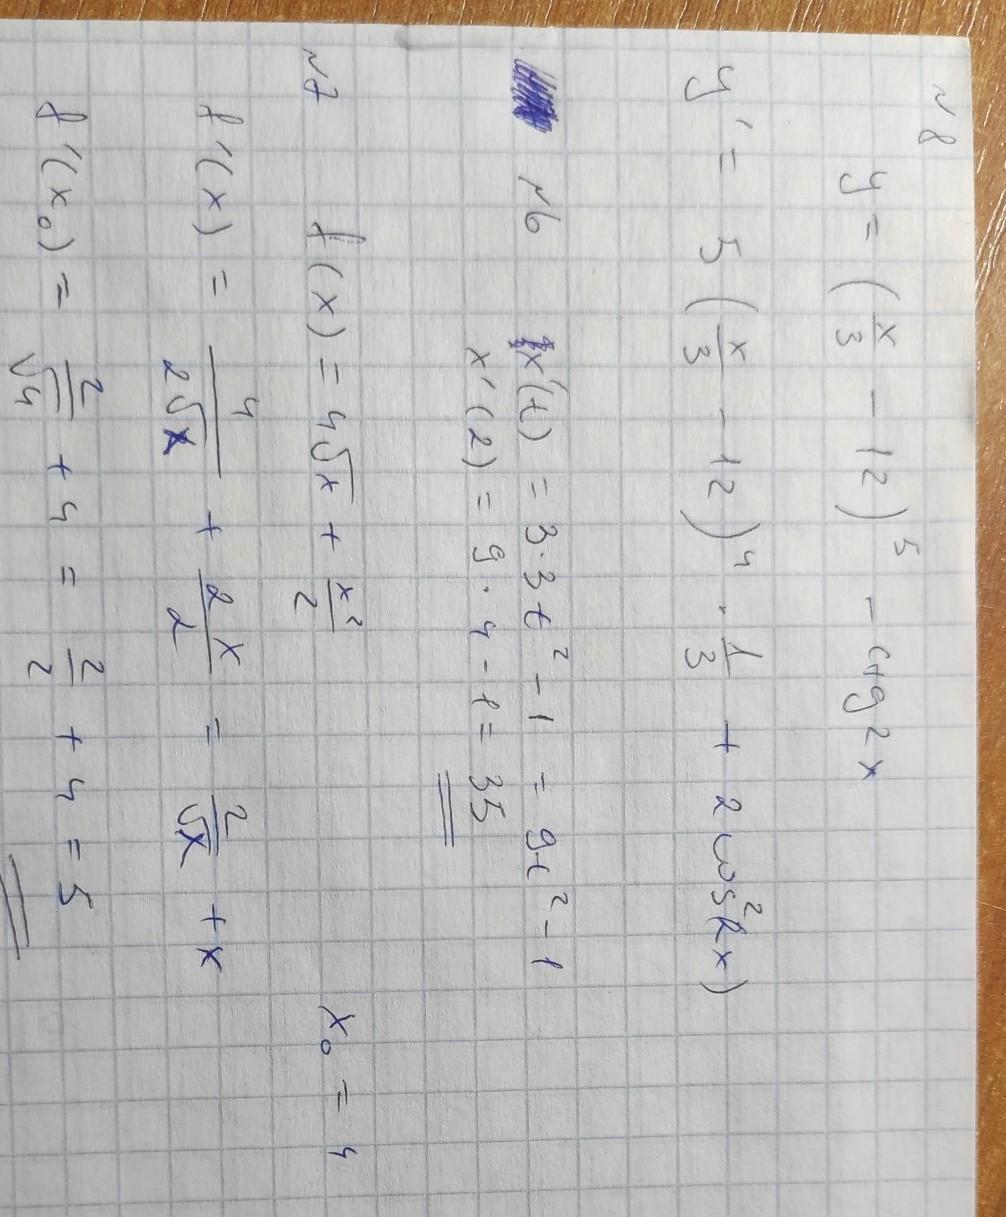 №8
y = (x/3 - 12)^5 - ctg 2x
y' = 5 (x/3 - 12)^4 · 1/3 + 2 cos^2(2x)
№6 x'(t) = 3·3t^2 - 1 = 9t^2 - 1
x'(2) = 9·4 - 1 = 35
№7 f(x) = 4√x + x^2/2 x₀ = 4
f'(x) = 4/(2√x) + 2x/2 = 2/√x + x
f'(x₀) = 2/√4 + 4 = 2/2 + 4 = 5